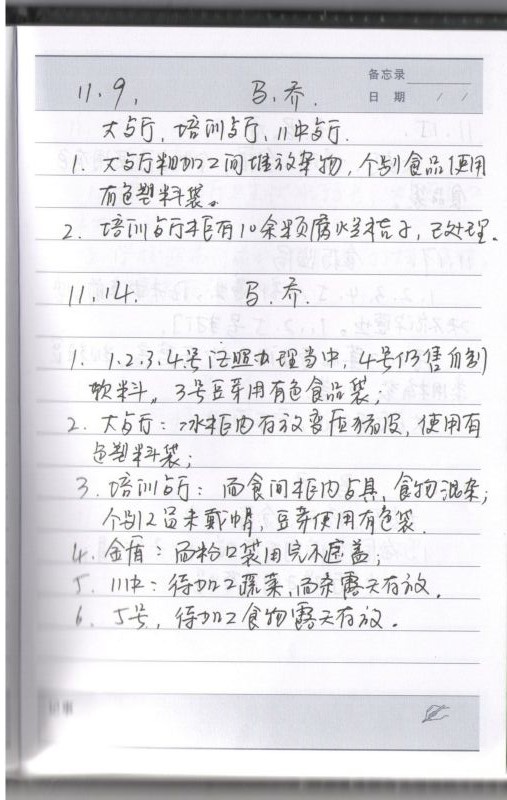 备忘录
日 期 / /
11.9. 马.乔.
大与厅,培训与厅,川中与厅.
1. 大与厅粗加工间堆放杂物,个别食品使用
有色塑料袋。
2. 培训与厅柜有10余颗腐烂桔子,已处理。
11.14. 马.乔.
1. 1.2.3.4.号证照办理当中,4号仍售自制
饮料。3号豆芽用有色食品袋;
2. 大与厅:冰柜内存放变质猪皮,使用有
色塑料袋;
3. 培训与厅:面食间柜内与具,食物混杂;
个别工员未戴帽,豆芽使用有色袋.
4. 金盾:面粉口袋用完不遮盖;
5. 川中:待加工蔬菜,面条露天存放.
6. 5号,待加工食物露天存放.